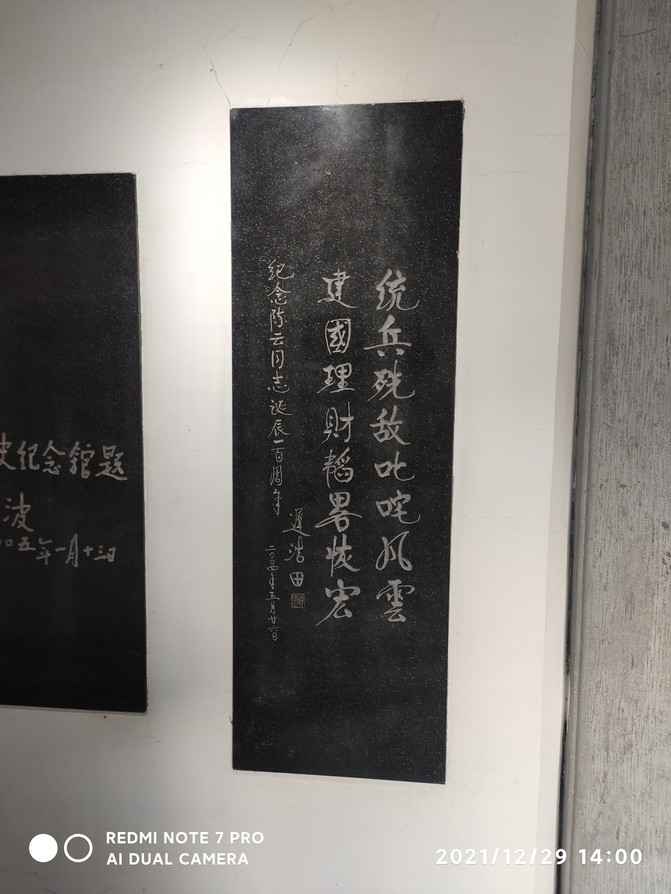 统兵歼敌叱咤风雲
建國理財韜畧恢宏
纪念陈云同志诞辰一百周年
遲浩田
二〇〇四年五月廿六日
史纪念舘题
波
〇〇五年一月十三日
REDMI NOTE 7 PRO
AI DUAL CAMERA
2021/12/29 14:00